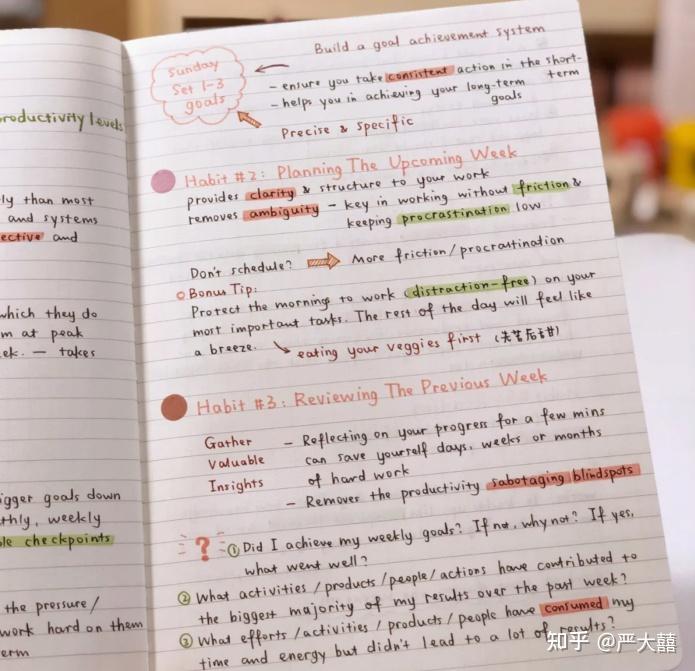 productivity levels
ly than most
and systems
ective and
which they do
m at peak
ek. — takes
igger goals down
thly, weekly
le checkpoints
the pressure/
work hard on them
erm
Build a goal achievement system
Sunday
Set 1-3
goals
- ensure you take consistent action in the short-
term
- helps you in achieving your long-term
goals
Precise & Specific
Habit #2: Planning The Upcoming Week
provides clarity & structure to your work
removes ambiguity - key in working without friction &
keeping procrastination low
Don't schedule? More friction/procrastination
Bonus Tip:
Protect the morning to work (distraction-free) on your
most important tasks. The rest of the day will feel like
a breeze.
eating your veggies first (先苦后甜)
Habit #3: Reviewing The Previous Week
Gather
Valuable
Insights
- Reflecting on your progress for a few mins
can save yourself days, weeks or months
of hard work
- Removes the productivity sabotaging blindspots
? ① Did I achieve my weekly goals? If not, why not? If yes,
what went well?
② What activities/products/people/actions have contributed to
the biggest majority of my results over the past week?
③ What efforts/activities/products/people have consumed my
time and energy but didn't lead to a lot of results?
知乎 @严大囍